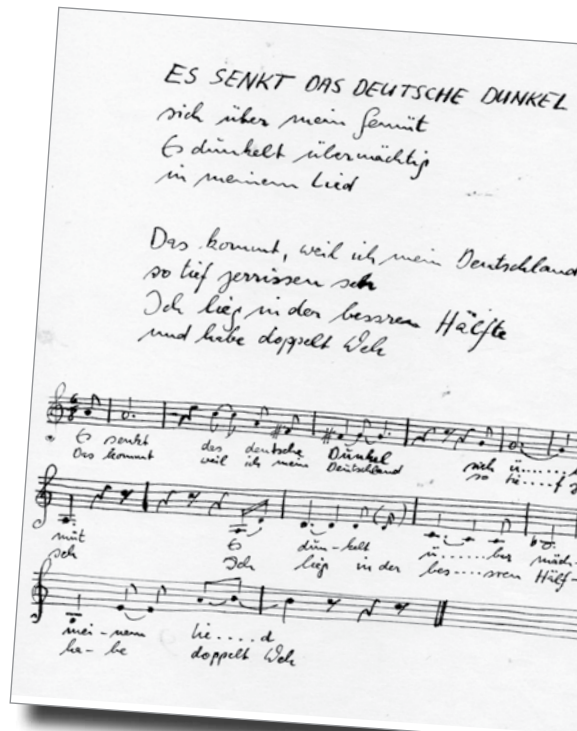 ES SENKT DAS DEUTSCHE DUNKEL
sich über mein Gemüt
Es dunkelt übermächtig
in meinem Lied
Das kommt, weil ich mein Deutschland
so tief zerrissen seh
Ich lieg in der bessren Hälfte
und habe doppelt Weh
Es senkt das deutsche Dunkel sich ü......
Das kommt weil ich mein Deutschland so tie....f
müt Es dun-kelt ü......ber mäch-
seh Ich lieg in der bes....sren Hälf-
mei-nem Lie.....d
ha-be doppelt Weh